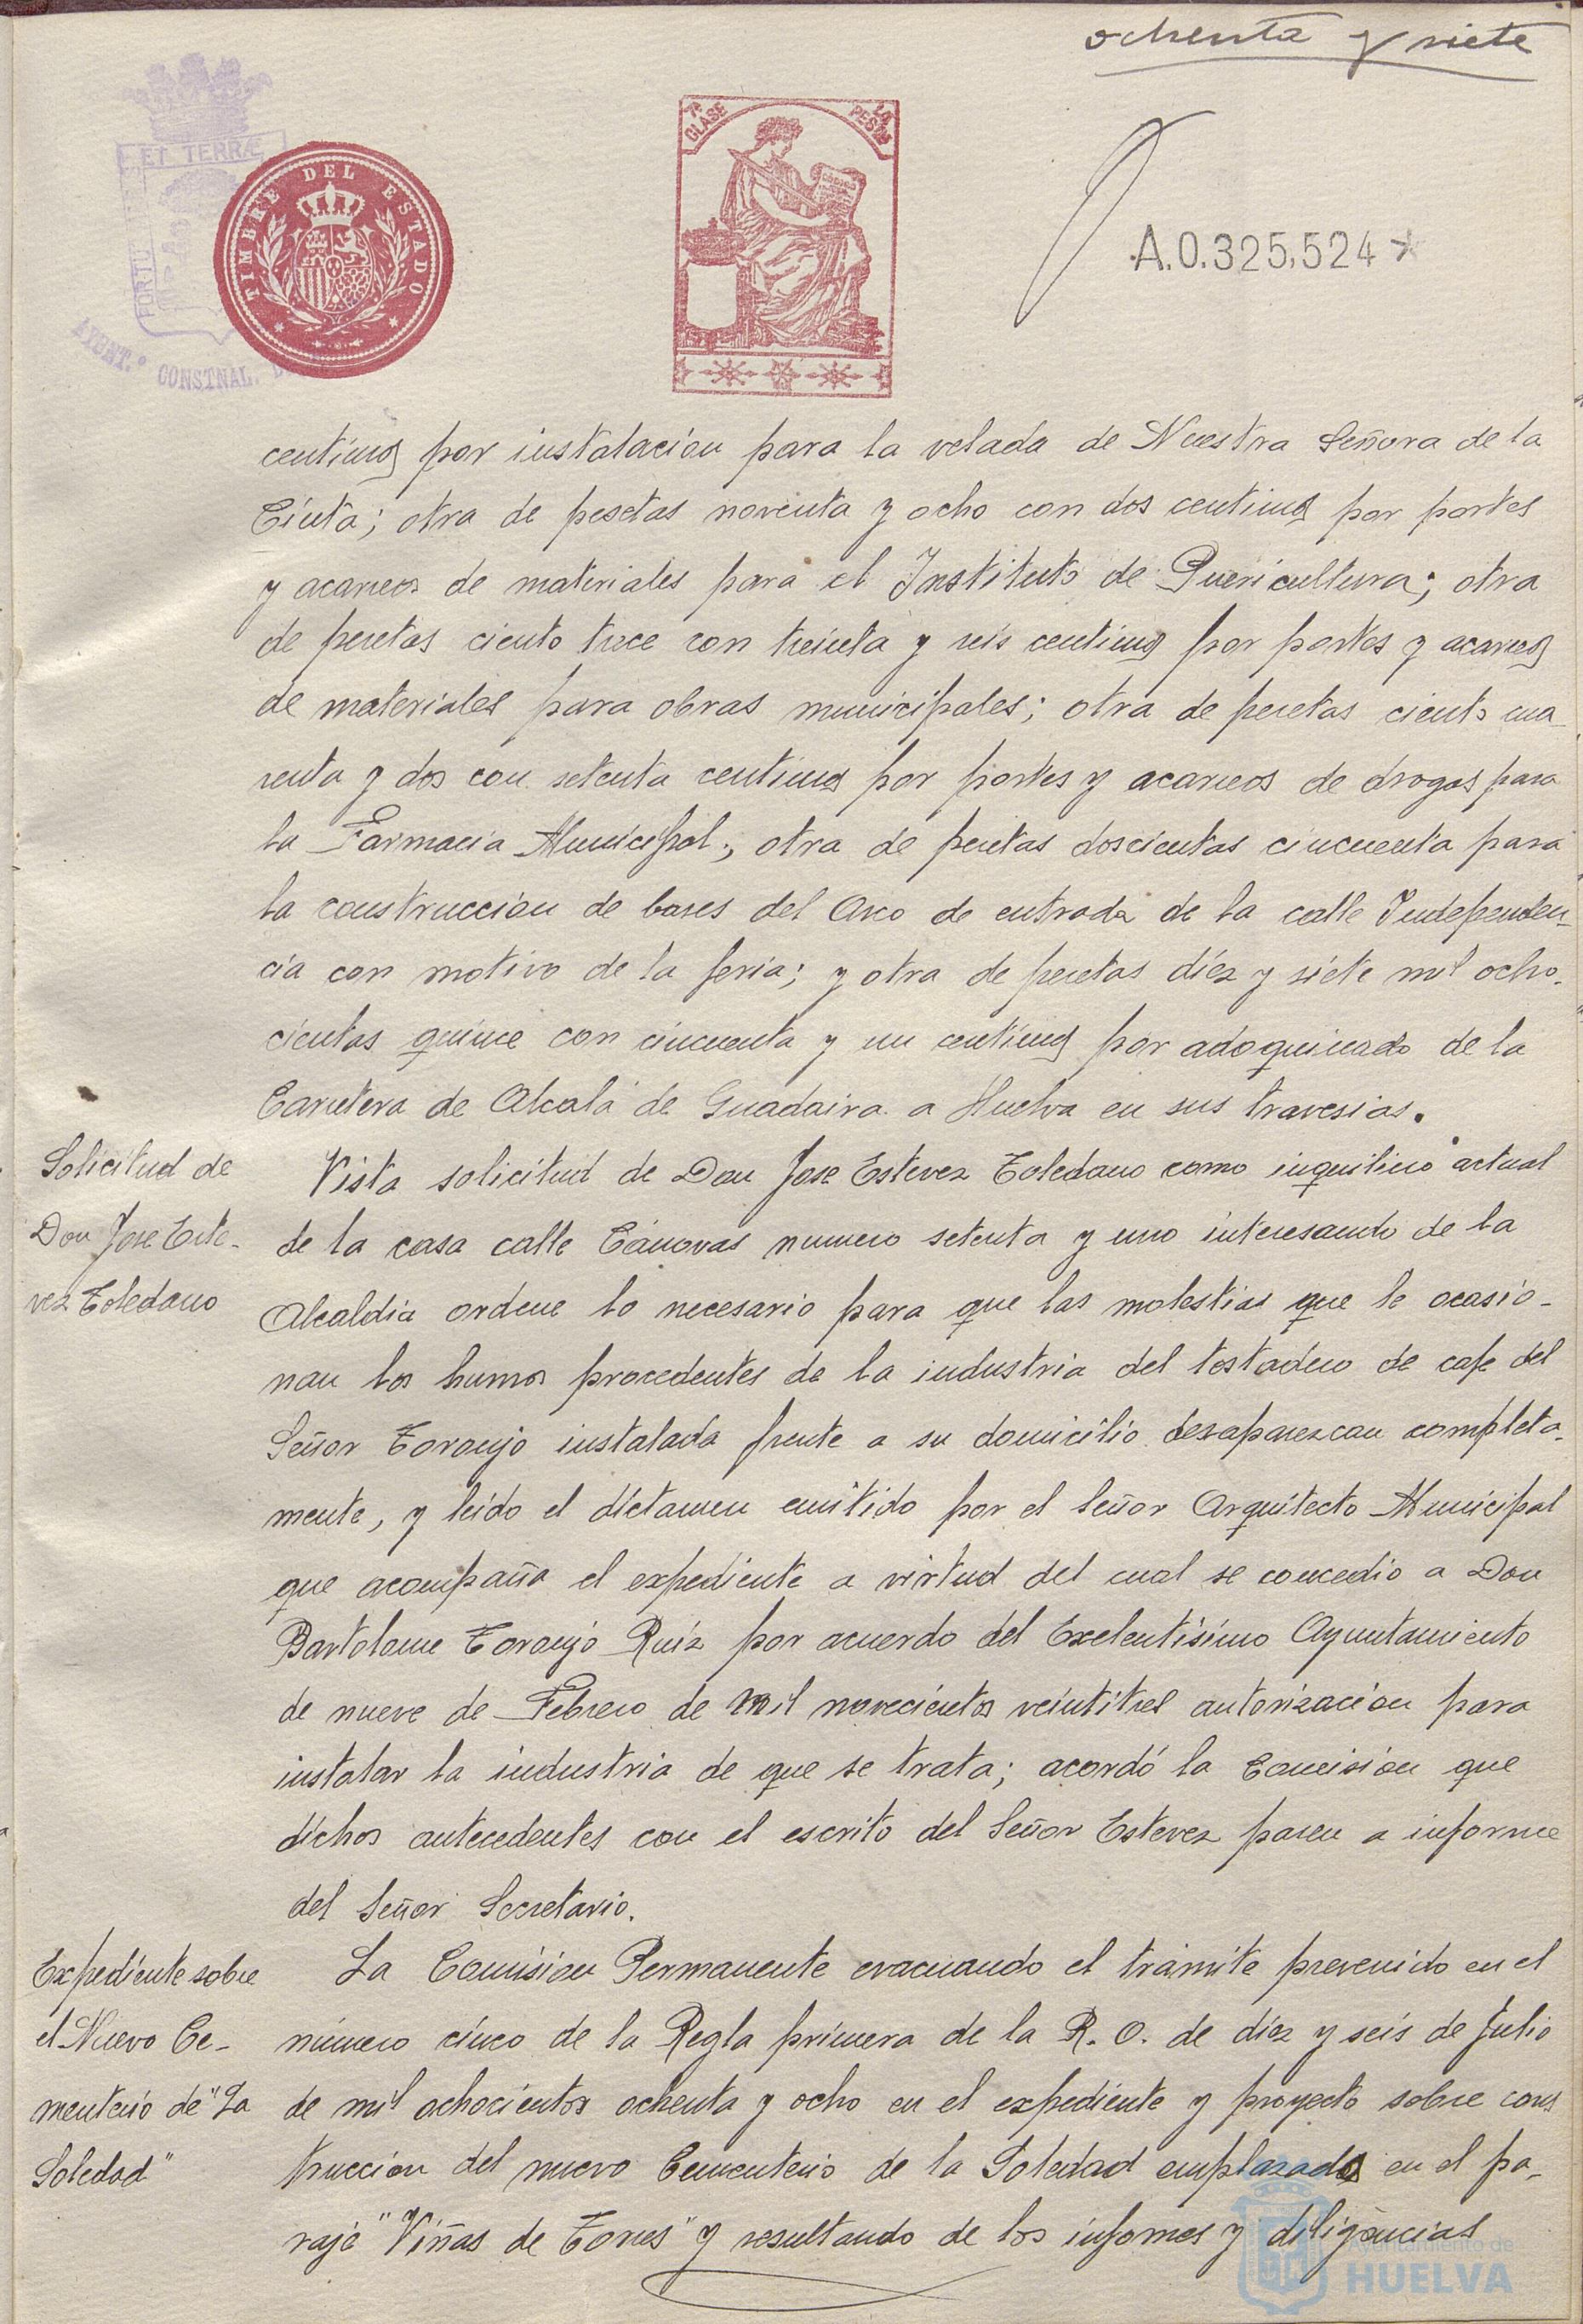 ochenta y siete
ET TERRÆ
PORTU
AYUNT.º CONSTNAL.
TIMBRE DEL ESTADO
7ª CLASE
A.0.325,524 *
centimos por instalacion para la velada de Nuestra Señora de la
Cinta; otra de pesetas noventa y ocho con dos centimos por portes
y acarreos de materiales para el Instituto de Puericultura; otra
de pesetas ciento trece con treinta y seis centimos por portes y acarreos
de materiales para obras municipales; otra de pesetas ciento cua
renta y dos con setenta centimos por portes y acarreos de drogas para
la Farmacia Municipal; otra de pesetas doscientas cincuenta para
la construccion de bases del Arco de entrada de la calle Independen-
cia con motivo de la feria; y otra de pesetas diez y siete mil ocho-
cientas quince con cincuenta y un centimos por adoquinado de la
Carretera de Alcalá de Guadaira a Huelva en sus travesias.
Solicitud de
Don Jose Este-
vez Toledano
Vista solicitud de Don Jose Estevez Toledano como inquilino actual
de la casa calle Cánovas numero setenta y uno interesando de la
Alcaldia ordene lo necesario para que las molestias que le ocasio-
nan los humos procedentes de la industria del tostadero de cafe del
Señor Toronjo instalada frente a su domicilio desaparezcan completa-
mente, y leido el dictamen emitido por el Señor Arquitecto Municipal
que acompaña el expediente a virtud del cual se concedio a Don
Bartolome Toronjo Ruiz por acuerdo del Exelentisimo Ayuntamiento
de nueve de Febrero de mil novecientos veintitres autorizacion para
instalar la industria de que se trata; acordó la Comision que
dichos antecedentes con el escrito del Señor Estevez pasen a informe
del Señor Secretario.
Expediente sobre
el Nuevo Ce-
menterio de "La
Soledad"
La Comision Permanente evacuando el trámite prevenido en el
número cinco de la Regla primera de la R. O. de diez y seis de Julio
de mil ochocientos ochenta y ocho en el expediente y proyecto sobre cons
truccion del nuevo Cementerio de la Soledad emplazado en el pa-
raje "Viñas de Torres" y resultando de los informes y diligencias
Ayuntamiento de
HUELVA